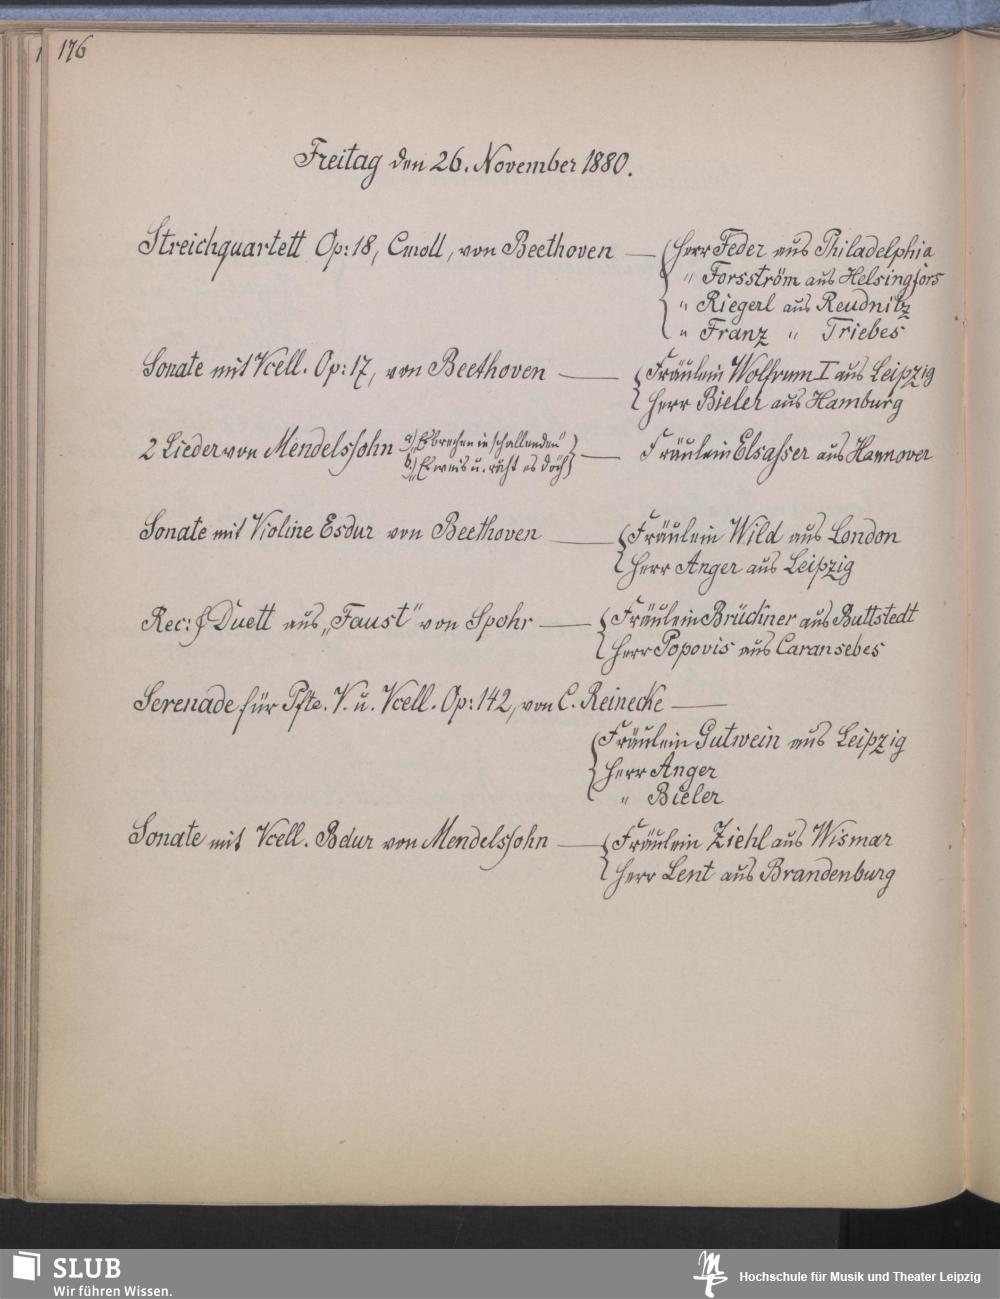 176
Freitag den 26. November 1880.
Streichquartett Op: 18, Cmoll, von Beethoven — Herr Feder aus Philadelphia
" Forsström aus Helsingfors
" Riegerl aus Reudnitz
" Franz " Triebes
Sonate mit Vcell. Op: 17, von Beethoven — Fräulein Wolfrum I aus Leipzig
Herr Bieler aus Hamburg
2 Lieder von Mendelssohn a) „Es brechen in schallenden" — Fräulein Elsasser aus Hannover
b) „Es weis u. räht es doch
Sonate mit Violine Esdur von Beethoven — Fräulein Wild aus London
Herr Anger aus Leipzig
Rec: & Duett aus „Faust" von Spohr — Fräulein Brückner aus Buttstedt
Herr Popovis aus Caransebes
Serenade für Pfte. V. u. Vcell. Op: 142, von C. Reinecke —
Fräulein Gutwein aus Leipzig
Herr Anger
" Bieler
Sonate mit Vcell. Bdur von Mendelssohn — Fräulein Ziehl aus Wismar
Herr Lent aus Brandenburg
SLUB
Wir führen Wissen.
Hochschule für Musik und Theater Leipzig